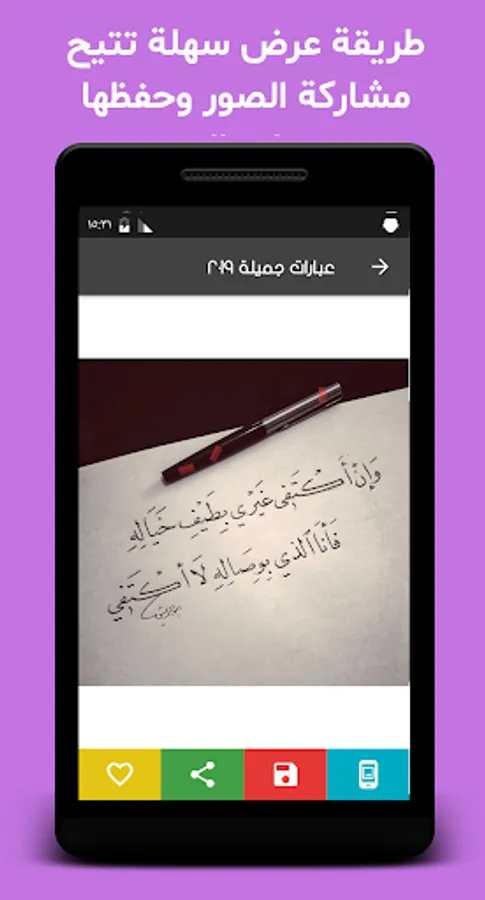 طريقة عرض سهلة تتيح
مشاركة الصور وحفظها
١٥:٢٦
عبارات جميلة ٢٠١٩
وَإِنْ أَكْتَفَى غَيْرِي بِطَيْفِ خَيَالِهِ
فَأَنَا الَّذِي بِوِصَالِهِ لَا أَكْتَفِي